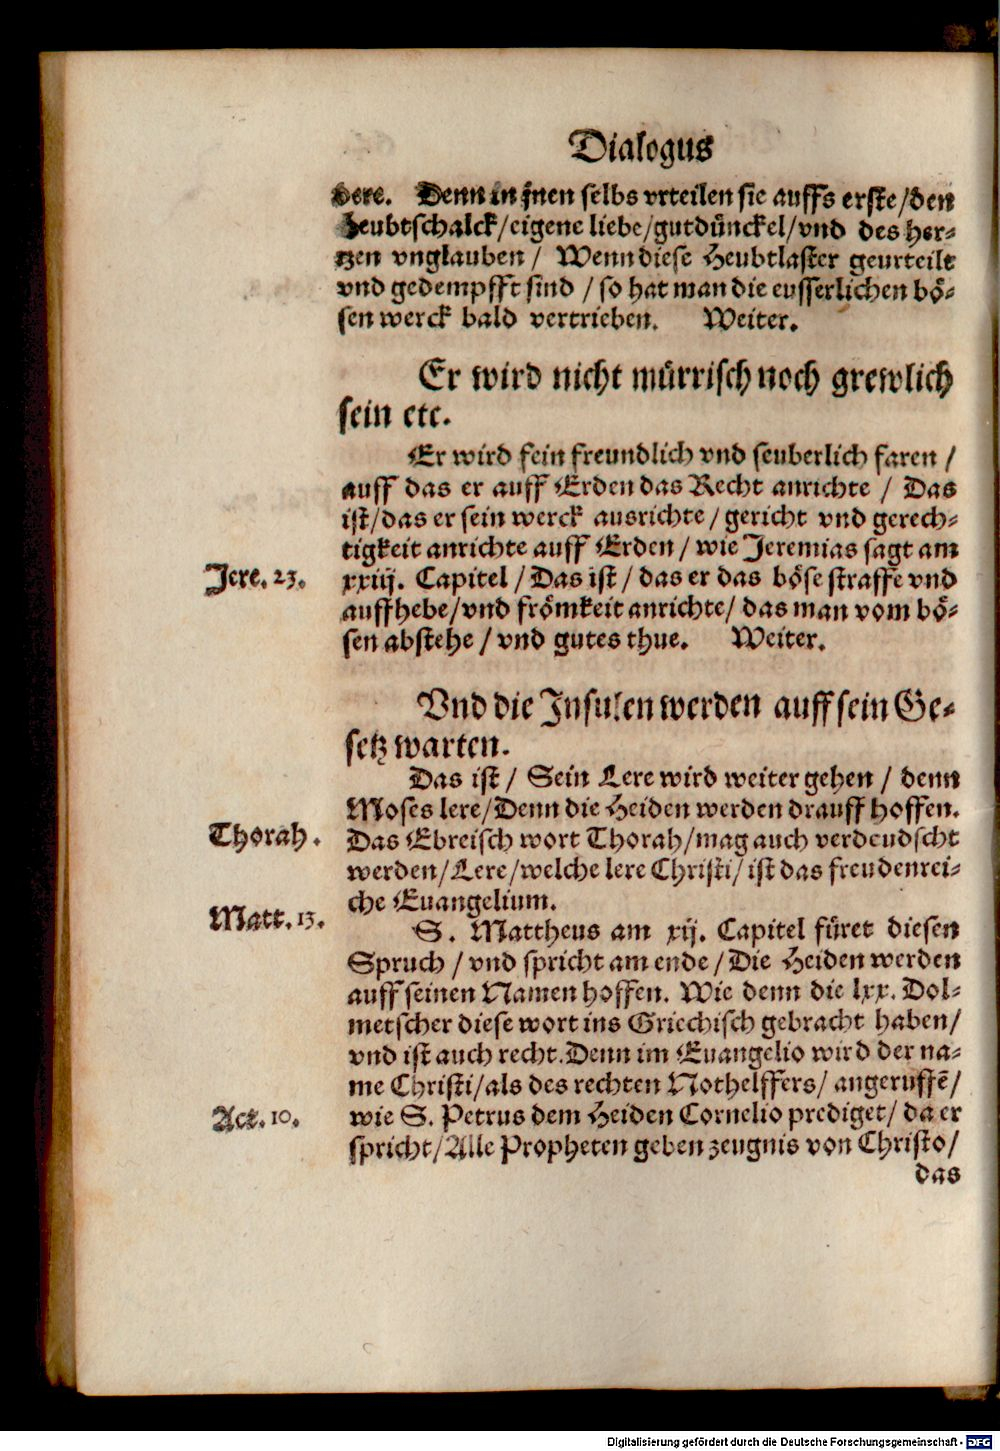 Dialogus
dere. Denn in jnen selbs vrteilen sie auffs erste/den
Heubtschalck/eigene liebe/gutdünckel/vnd des her-
tzen vnglauben / Wenn diese Heubtlaster geurteilt
vnd gedempfft sind / so hat man die eusserlichen bö-
sen werck bald vertrieben. Weiter.
Er wird nicht mürrisch noch grewlich
sein etc.
Er wird fein freundlich vnd seuberlich faren /
auff das er auff Erden das Recht anrichte / Das
ist/das er sein werck ausrichte / gericht vnd gerech-
tigkeit anrichte auff Erden / wie Jeremias sagt am
Jere. 23.
xxiij. Capitel / Das ist / das er das böse straffe vnd
auffhebe/vnd frömkeit anrichte/ das man vom bö-
sen abstehe / vnd gutes thue. Weiter.
Vnd die Insulen werden auff sein Ge-
setz warten.
Das ist / Sein Lere wird weiter gehen / denn
Moses lere/Denn die Heiden werden drauff hoffen.
Thorah.
Das Ebreisch wort Thorah/mag auch verdeudscht
werden/Lere/welche lere Christi/ ist das freudenrei-
che Euangelium.
Matt. 13.
S. Mattheus am xij. Capitel füret diesen
Spruch / vnd spricht am ende / Die Heiden werden
auff seinen Namen hoffen. Wie denn die lxx. Dol-
metscher diese wort ins Griechisch gebracht haben/
vnd ist auch recht. Denn im Euangelio wird der na-
me Christi/als des rechten Nothelffers/ angeruffẽ/
Act. 10.
wie S. Petrus dem Heiden Cornelio prediget/ da er
spricht/Alle Propheten geben zeugnis von Christo/
das
Digitalisierung gefördert durch die Deutsche Forschungsgemeinschaft - DFG